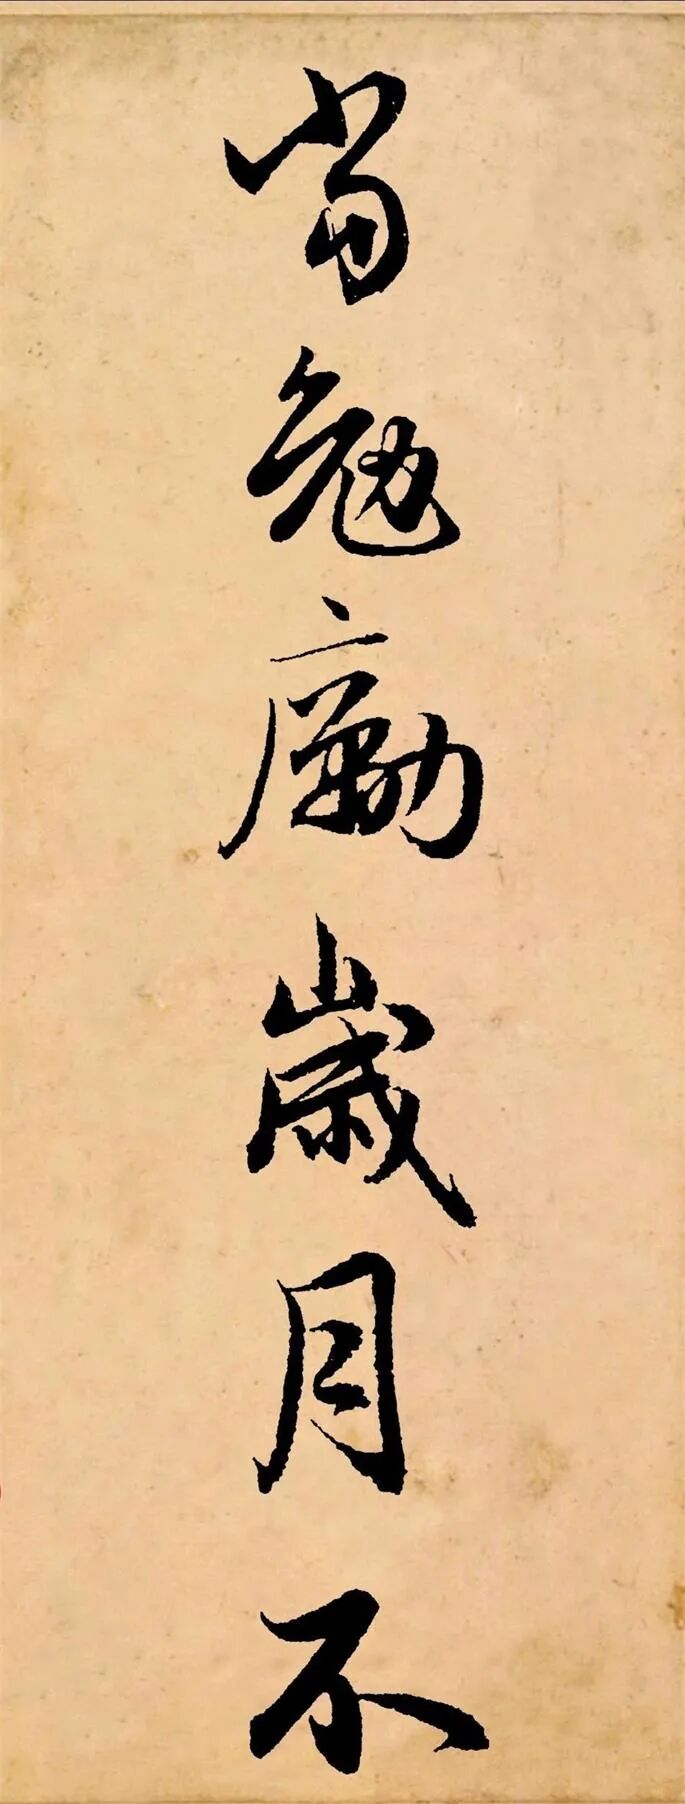 當勉勵歲月不